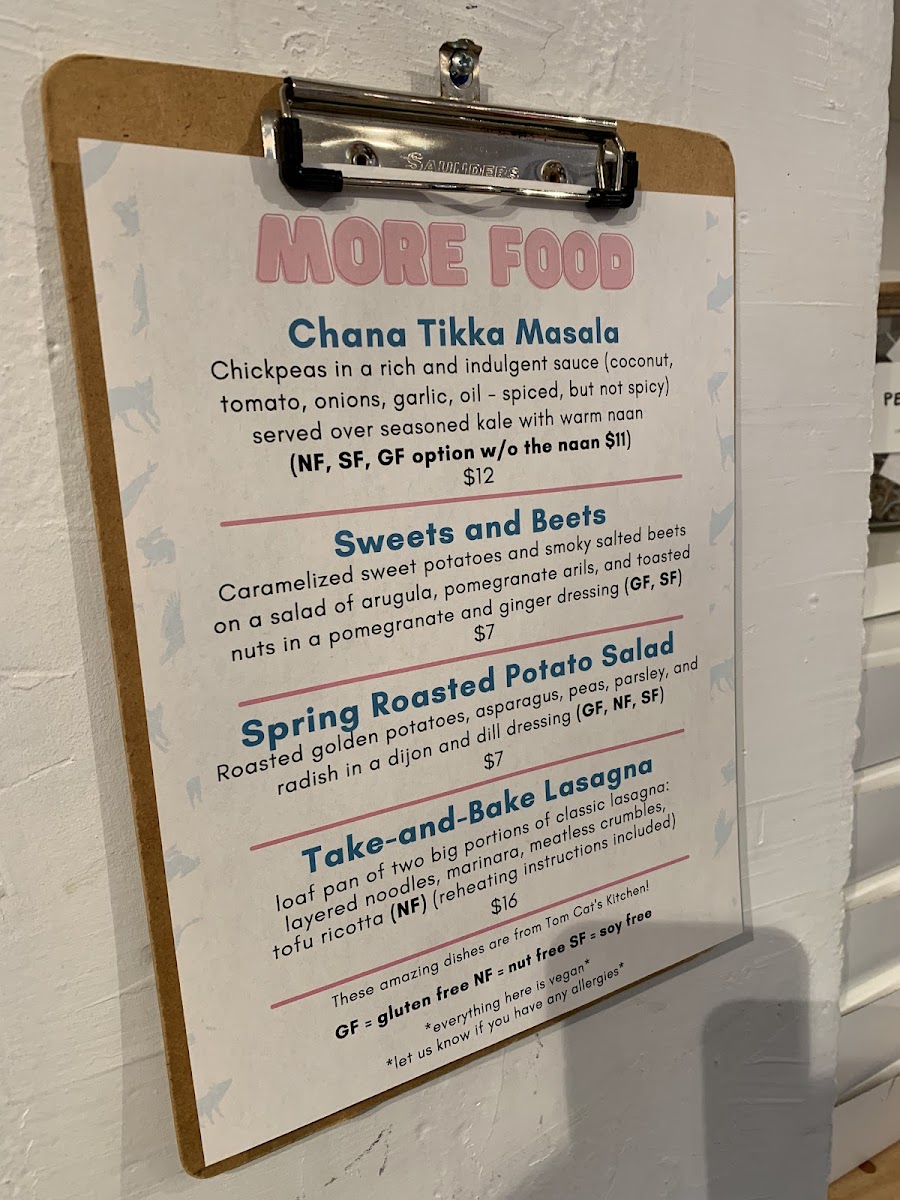 SAUNDERS
MORE FOOD
Chana Tikka Masala
Chickpeas in a rich and indulgent sauce (coconut,
tomato, onions, garlic, oil - spiced, but not spicy)
served over seasoned kale with warm naan
(NF, SF, GF option w/o the naan $11)
$12
Sweets and Beets
Caramelized sweet potatoes and smoky salted beets
on a salad of arugula, pomegranate arils, and toasted
nuts in a pomegranate and ginger dressing (GF, SF)
$7
Spring Roasted Potato Salad
Roasted golden potatoes, asparagus, peas, parsley, and
radish in a dijon and dill dressing (GF, NF, SF)
$7
Take-and-Bake Lasagna
loaf pan of two big portions of classic lasagna:
layered noodles, marinara, meatless crumbles,
tofu ricotta (NF) (reheating instructions included)
$16
These amazing dishes are from Tom Cat's Kitchen!
GF = gluten free NF = nut free SF = soy free
*everything here is vegan*
*let us know if you have any allergies*